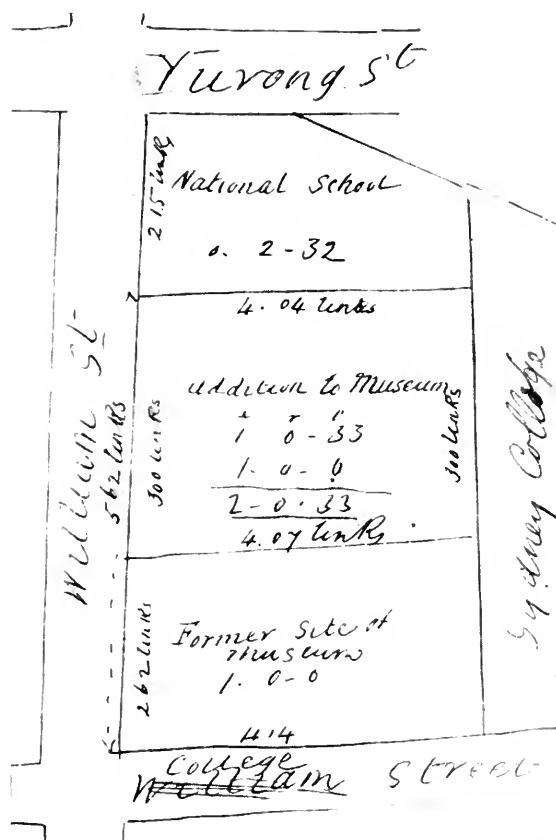 Yurong St
215 links
National School
0. 2-32
4.04 links
William St
562 links
300 links
addition to Museum
a r p
1 0-33
1-0-0
2-0.33
4.07 links
300 links
Sydney College
262 links
Former Site of
Museum
1. 0-0
414
College
William Street